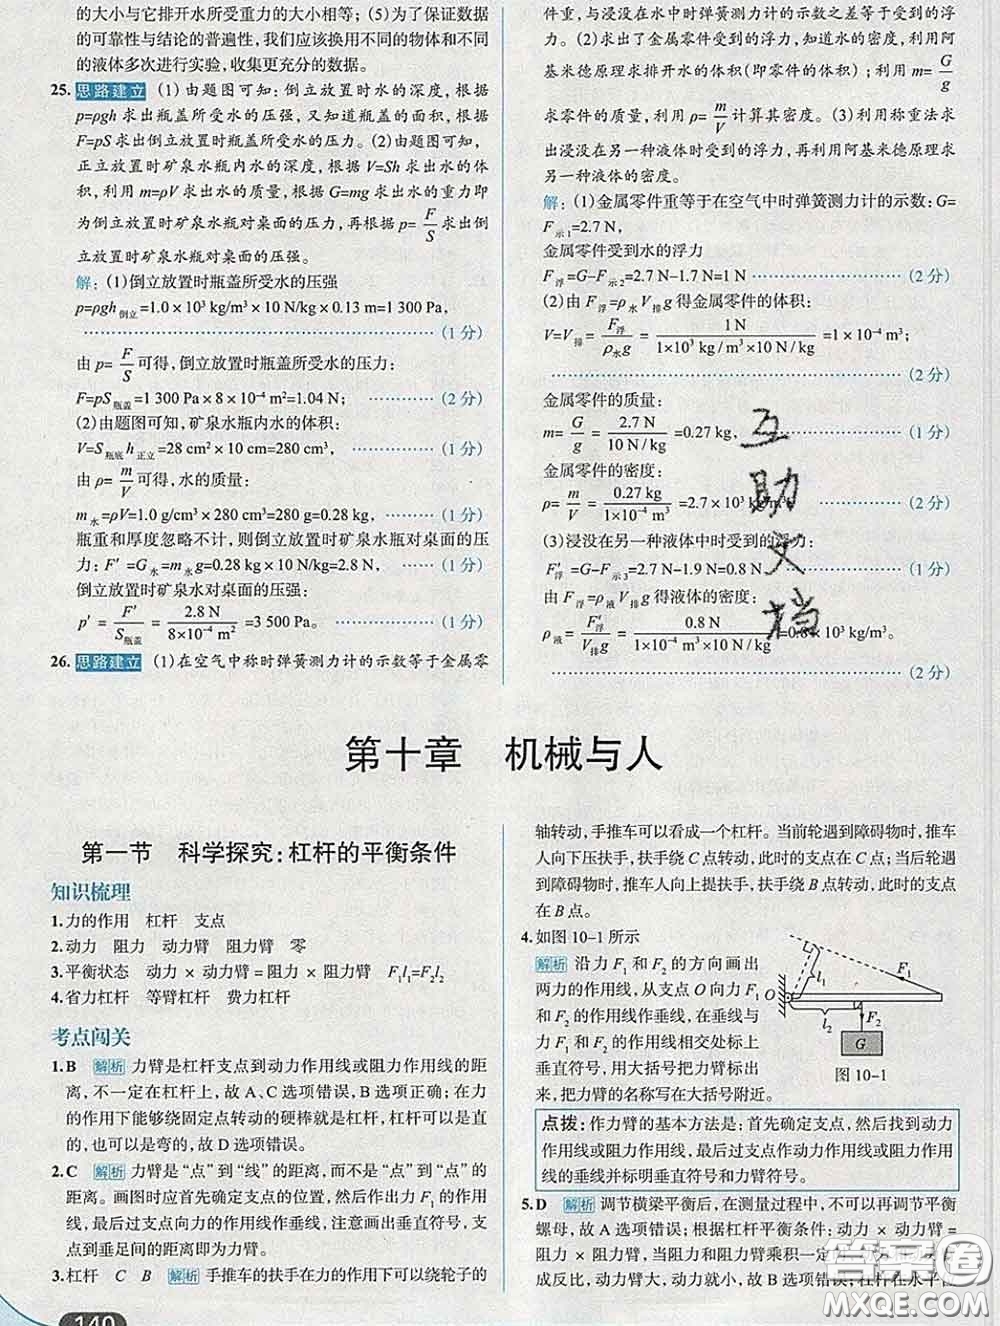 的大小与它排开水所受重力的大小相等；(5)为了保证数据
的可靠性与结论的普遍性，我们应该换用不同的物体和不同
的液体多次进行实验，收集更充分的数据。
25. 思路建立 (1)由题图可知：倒立放置时水的深度，根据
p=ρgh 求出瓶盖所受水的压强，又知道瓶盖的面积，根据
F=pS求出倒立放置时瓶盖所受水的压力。(2)由题图可知，
正立放置时矿泉水瓶内水的深度，根据 V=Sh 求出水的体
积，利用 m=ρV 求出水的质量，根据 G=mg 求出水的重力即
为倒立放置时矿泉水瓶对桌面的压力，再根据 p=F/S 求出倒
立放置时矿泉水瓶对桌面的压强。
解：(1)倒立放置时瓶盖所受水的压强
p=ρgh倒立=1.0×10³ kg/m³×10 N/kg×0.13 m=1 300 Pa，
(1分)
由 p=F/S可得，倒立放置时瓶盖所受水的压力：
F=pS瓶盖=1 300 Pa×8×10⁻⁴ m²=1.04 N； (2分)
(2)由题图可知，矿泉水瓶内水的体积：
V=S瓶底h正立=28 cm²×10 cm=280 cm³， (1分)
由 ρ=m/V可得，水的质量：
m水=ρV=1.0 g/cm³×280 cm³=280 g=0.28 kg， (1分)
瓶重和厚度忽略不计，则倒立放置时矿泉水瓶对桌面的压
力：F′=G水=m水g=0.28 kg×10 N/kg=2.8 N， (1分)
倒立放置时矿泉水瓶对桌面的压强：
p′=F′/S瓶盖=2.8 N/8×10⁻⁴ m²=3 500 Pa。 (1分)
26. 思路建立 (1)在空气中称时弹簧测力计的示数等于金属零
件重，与浸没在水中时弹簧测力计的示数之差等于受到的浮
力。(2)求出了金属零件受到的浮力，知道水的密度，利用阿
基米德原理求排开水的体积(即零件的体积)；利用 m=G/g
求零件的质量，利用 ρ=m/V计算其密度。(3)利用称重法求
出浸没在另一种液体时受到的浮力，再利用阿基米德原理求
另一种液体的密度。
解：(1)金属零件重等于在空气中时弹簧测力计的示数：G=
F示1=2.7 N，
金属零件受到水的浮力
F浮=G-F示2=2.7 N-1.7 N=1 N (2分)
(2)由 F浮=ρ水V排g 得金属零件的体积：
V=V排=F浮/ρ水g=1 N/1×10³ kg/m³×10 N/kg=1×10⁻⁴ m³，
(2分)
金属零件的质量：
m=G/g=2.7 N/10 N/kg=0.27 kg， (1分)
金属零件的密度：
ρ=m/V=0.27 kg/1×10⁻⁴ m³=2.7×10³ kg/m³ (2分)
(3)浸没在另一种液体中时受到的浮力：
F′浮=G-F示3=2.7 N-1.9 N=0.8 N (1分)
由 F浮=ρ液V排g 得液体的密度：
ρ液=F′浮/V排g=0.8 N/1×10⁻⁴ m³×10 N/kg=0.8×10³ kg/m³。
(2分)
互
助
文
档
第十章 机械与人
第一节 科学探究：杠杆的平衡条件
知识梳理
1.力的作用 杠杆 支点
2.动力 阻力 动力臂 阻力臂 零
3.平衡状态 动力×动力臂=阻力×阻力臂 F₁l₁=F₂l₂
4.省力杠杆 等臂杠杆 费力杠杆
考点闯关
1.B 解析 力臂是杠杆支点到动力作用线或阻力作用线的距
离，不一定在杠杆上，故 A、C 选项错误，B 选项正确；在力
的作用下能够绕固定点转动的硬棒就是杠杆，杠杆可以是直
的，也可以是弯的，故 D 选项错误。
2.C 解析 力臂是“点”到“线”的距离，而不是“点”到“点”的
距离。画图时应首先确定支点的位置，然后作出力 F₁ 的作用
线，最后过支点向力的作用线作垂线，注意画出垂直符号，支
点到垂足间的距离即为力臂。
3.杠杆 C B 解析 手推车的扶手在力的作用下可以绕轮子的
轴转动，手推车可以看成一个杠杆。当前轮遇到障碍物时，推车
人向下压扶手，扶手绕 C 点转动，此时的支点在 C 点；当后轮遇
到障碍物时，推车人向上提扶手，扶手绕 B 点转动，此时的支点
在 B 点。
4.如图 10-1 所示
解析 沿力 F₁ 和 F₂ 的方向画出
两力的作用线，从支点 O 向力 F₁
和 F₂ 的作用线作垂线，在垂线与
力的作用线相交处标上
垂直符号，用大括号把力臂标出
来，把力臂的名称写在大括号附近。
O
l₁
F₁
l₂
F₂
G
图 10-1
点拨：作力臂的基本方法是：首先确定支点，然后找到动力
作用线或阻力作用线，最后过支点作动力作用线或阻力作用
线的垂线并标明垂直符号和力臂符号。
5.D 解析 调节横梁平衡后，在测量过程中，不可以再调节平衡
螺母，故 A 选项错误；根据杠杆平衡条件：动力×动力臂=
阻力×阻力臂，当阻力和阻力臂乘积一定
成反比，动力臂大，动力就小，故 B 选项错误；杠杆在水平位
140
答案卷
MXQE.COM